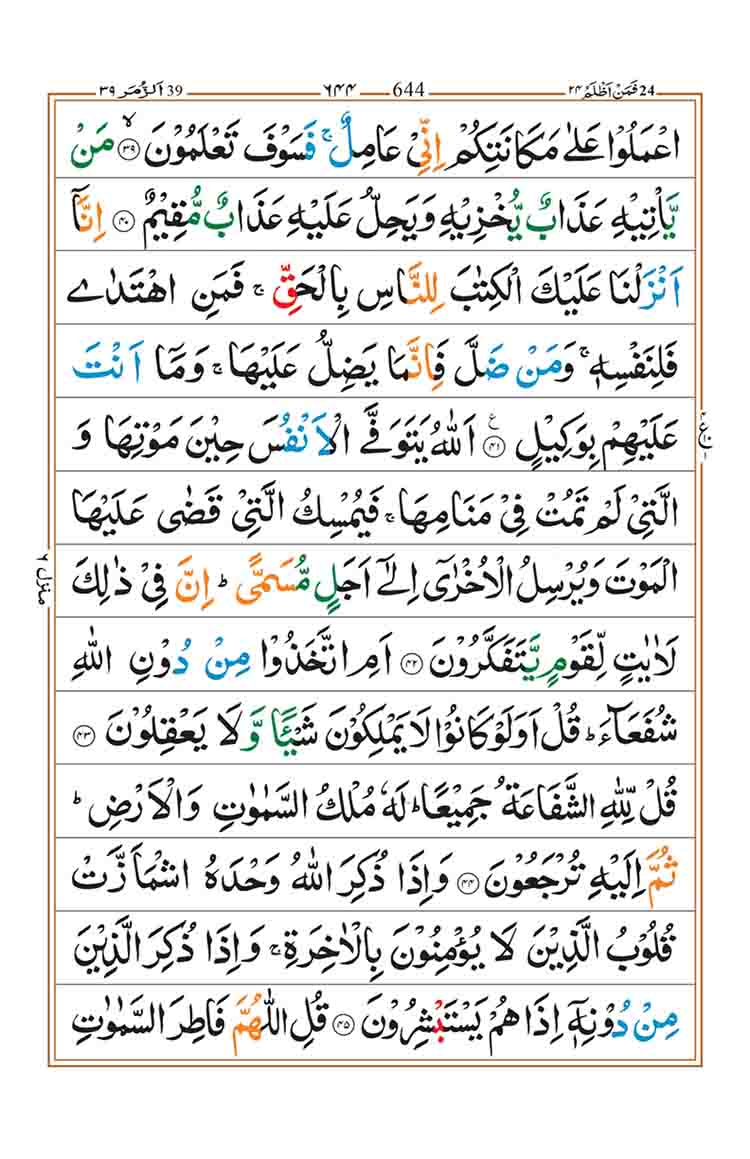 24 فَمَنْ اَظْلَمُ ۲۴
644 ٦٤٤
39 اَلزُّمَر ۳۹
اعْمَلُوْا عَلٰى مَكَانَتِكُمْ اِنِّىْ عَامِلٌ ۚ فَسَوْفَ تَعْلَمُوْنَ ۙ ﴿۳۹﴾ مَنْ
يَّاْتِيْهِ عَذَابٌ يُّخْزِيْهِ وَيَحِلُّ عَلَيْهِ عَذَابٌ مُّقِيْمٌ ﴿۴۰﴾ اِنَّاۤ
اَنْزَلْنَا عَلَيْكَ الْكِتٰبَ لِلنَّاسِ بِالْحَقِّ ۚ فَمَنِ اهْتَدٰى
فَلِنَفْسِهٖ ۚ وَمَنْ ضَلَّ فَاِنَّمَا يَضِلُّ عَلَيْهَا ۚ وَمَاۤ اَنْتَ
عَلَيْهِمْ بِوَكِيْلٍ ﴿۴۱﴾ ع اَللّٰهُ يَتَوَفَّى الْاَنْفُسَ حِيْنَ مَوْتِهَا وَ
الَّتِىْ لَمْ تَمُتْ فِىْ مَنَامِهَا ۚ فَيُمْسِكُ الَّتِىْ قَضٰى عَلَيْهَا
الْمَوْتَ وَيُرْسِلُ الْاُخْرٰٓى اِلٰٓى اَجَلٍ مُّسَمًّى ؕ اِنَّ فِىْ ذٰلِكَ
لَاٰيٰتٍ لِّقَوْمٍ يَّتَفَكَّرُوْنَ ﴿۴۲﴾ اَمِ اتَّخَذُوْا مِنْ دُوْنِ اللّٰهِ
شُفَعَآءَ ؕ قُلْ اَوَلَوْ كَانُوْا لَا يَمْلِكُوْنَ شَيْئًا وَّلَا يَعْقِلُوْنَ ﴿۴۳﴾
قُلْ لِّلّٰهِ الشَّفَاعَةُ جَمِيْعًا ؕ لَهٗ مُلْكُ السَّمٰوٰتِ وَالْاَرْضِ ؕ
ثُمَّ اِلَيْهِ تُرْجَعُوْنَ ﴿۴۴﴾ وَاِذَا ذُكِرَ اللّٰهُ وَحْدَهُ اشْمَاَزَّتْ
قُلُوْبُ الَّذِيْنَ لَا يُؤْمِنُوْنَ بِالْاٰخِرَةِ ۚ وَاِذَا ذُكِرَ الَّذِيْنَ
مِنْ دُوْنِهٖۤ اِذَا هُمْ يَسْتَبْشِرُوْنَ ﴿۴۵﴾ قُلِ اللّٰهُمَّ فَاطِرَ السَّمٰوٰتِ
منزل ٦